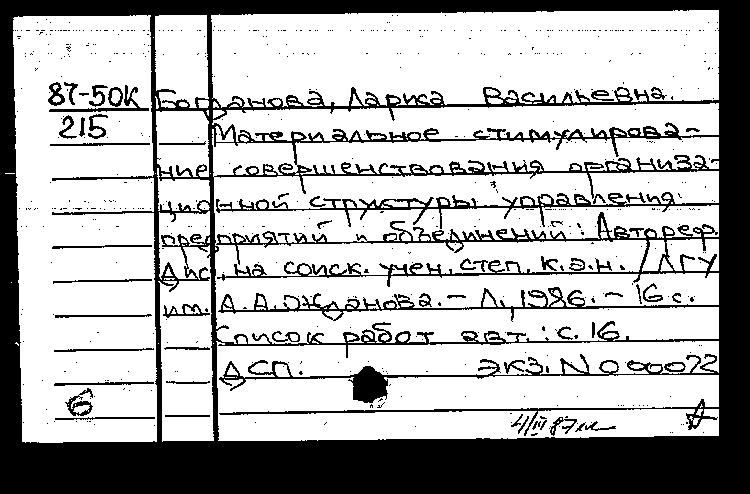 87-50К Богданова, Лариса Васильевна.
215 Материальное стимулирова-
ние совершенствования организа-
ционной структуры управления
предприятий и объединений: Автореф.
Дис. на соиск. учен. степ. к.э.н. / ЛГУ
им. А.А.Жданова. - Л., 1986. - 16 с.
Список работ авт.: с. 16.
ДСП. ЭКЗ. N 000072
б
4/III 87